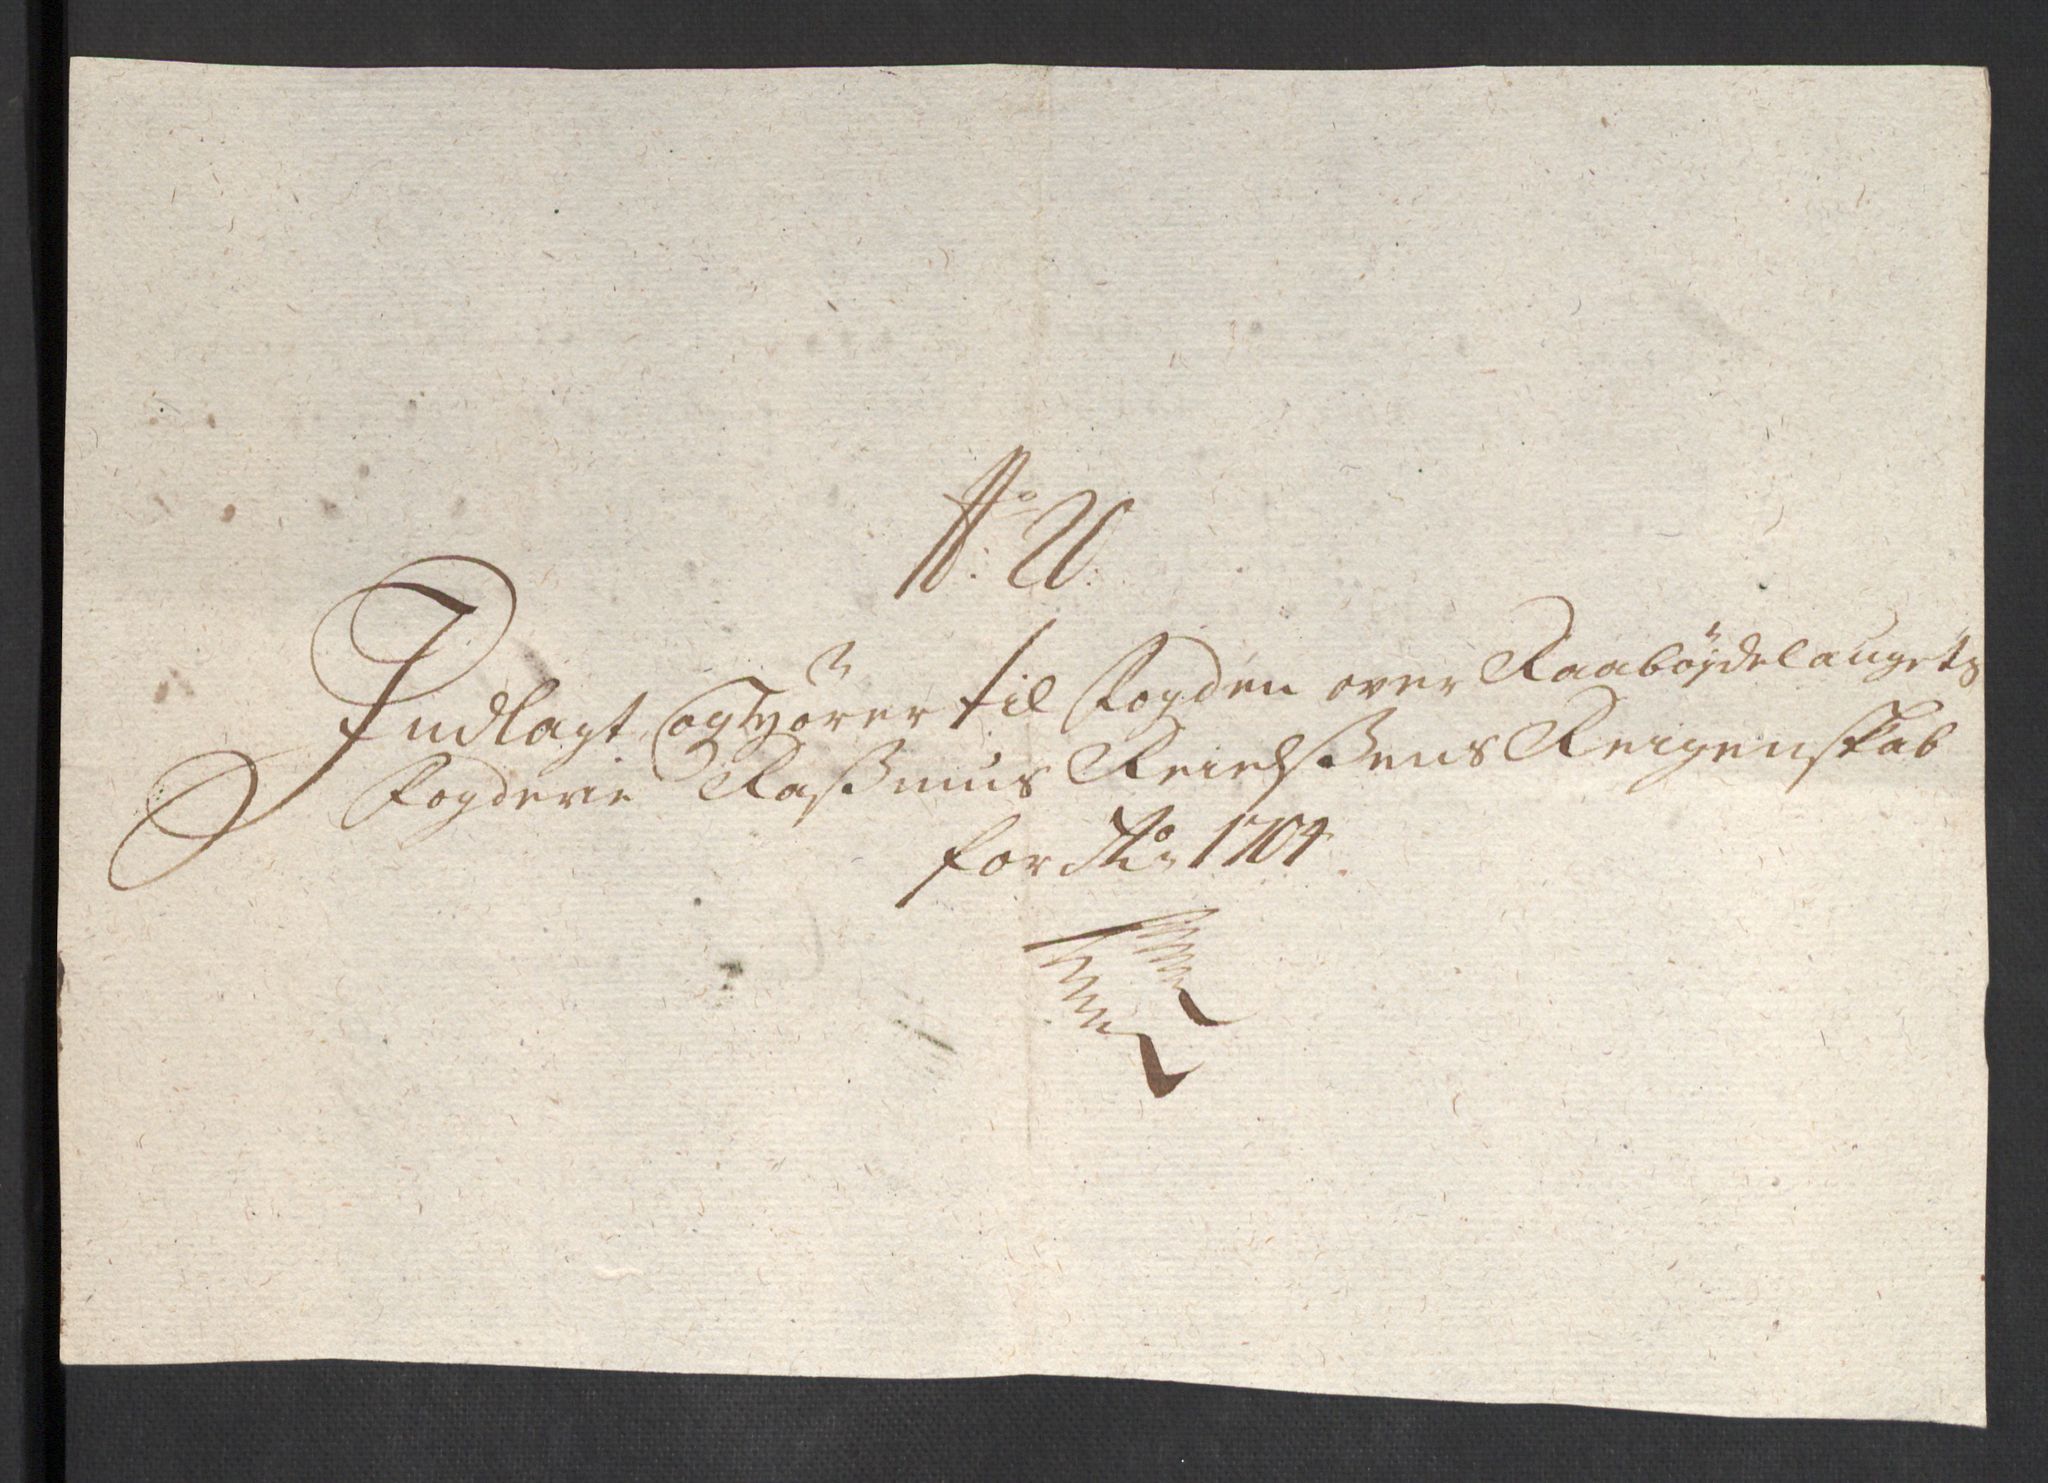 No: 20:
Indlagt, og hörer til Fogden over Raabøjdelaugets
Fogderie Rasmus Reielssens Reigenskab
for Ao: 1704